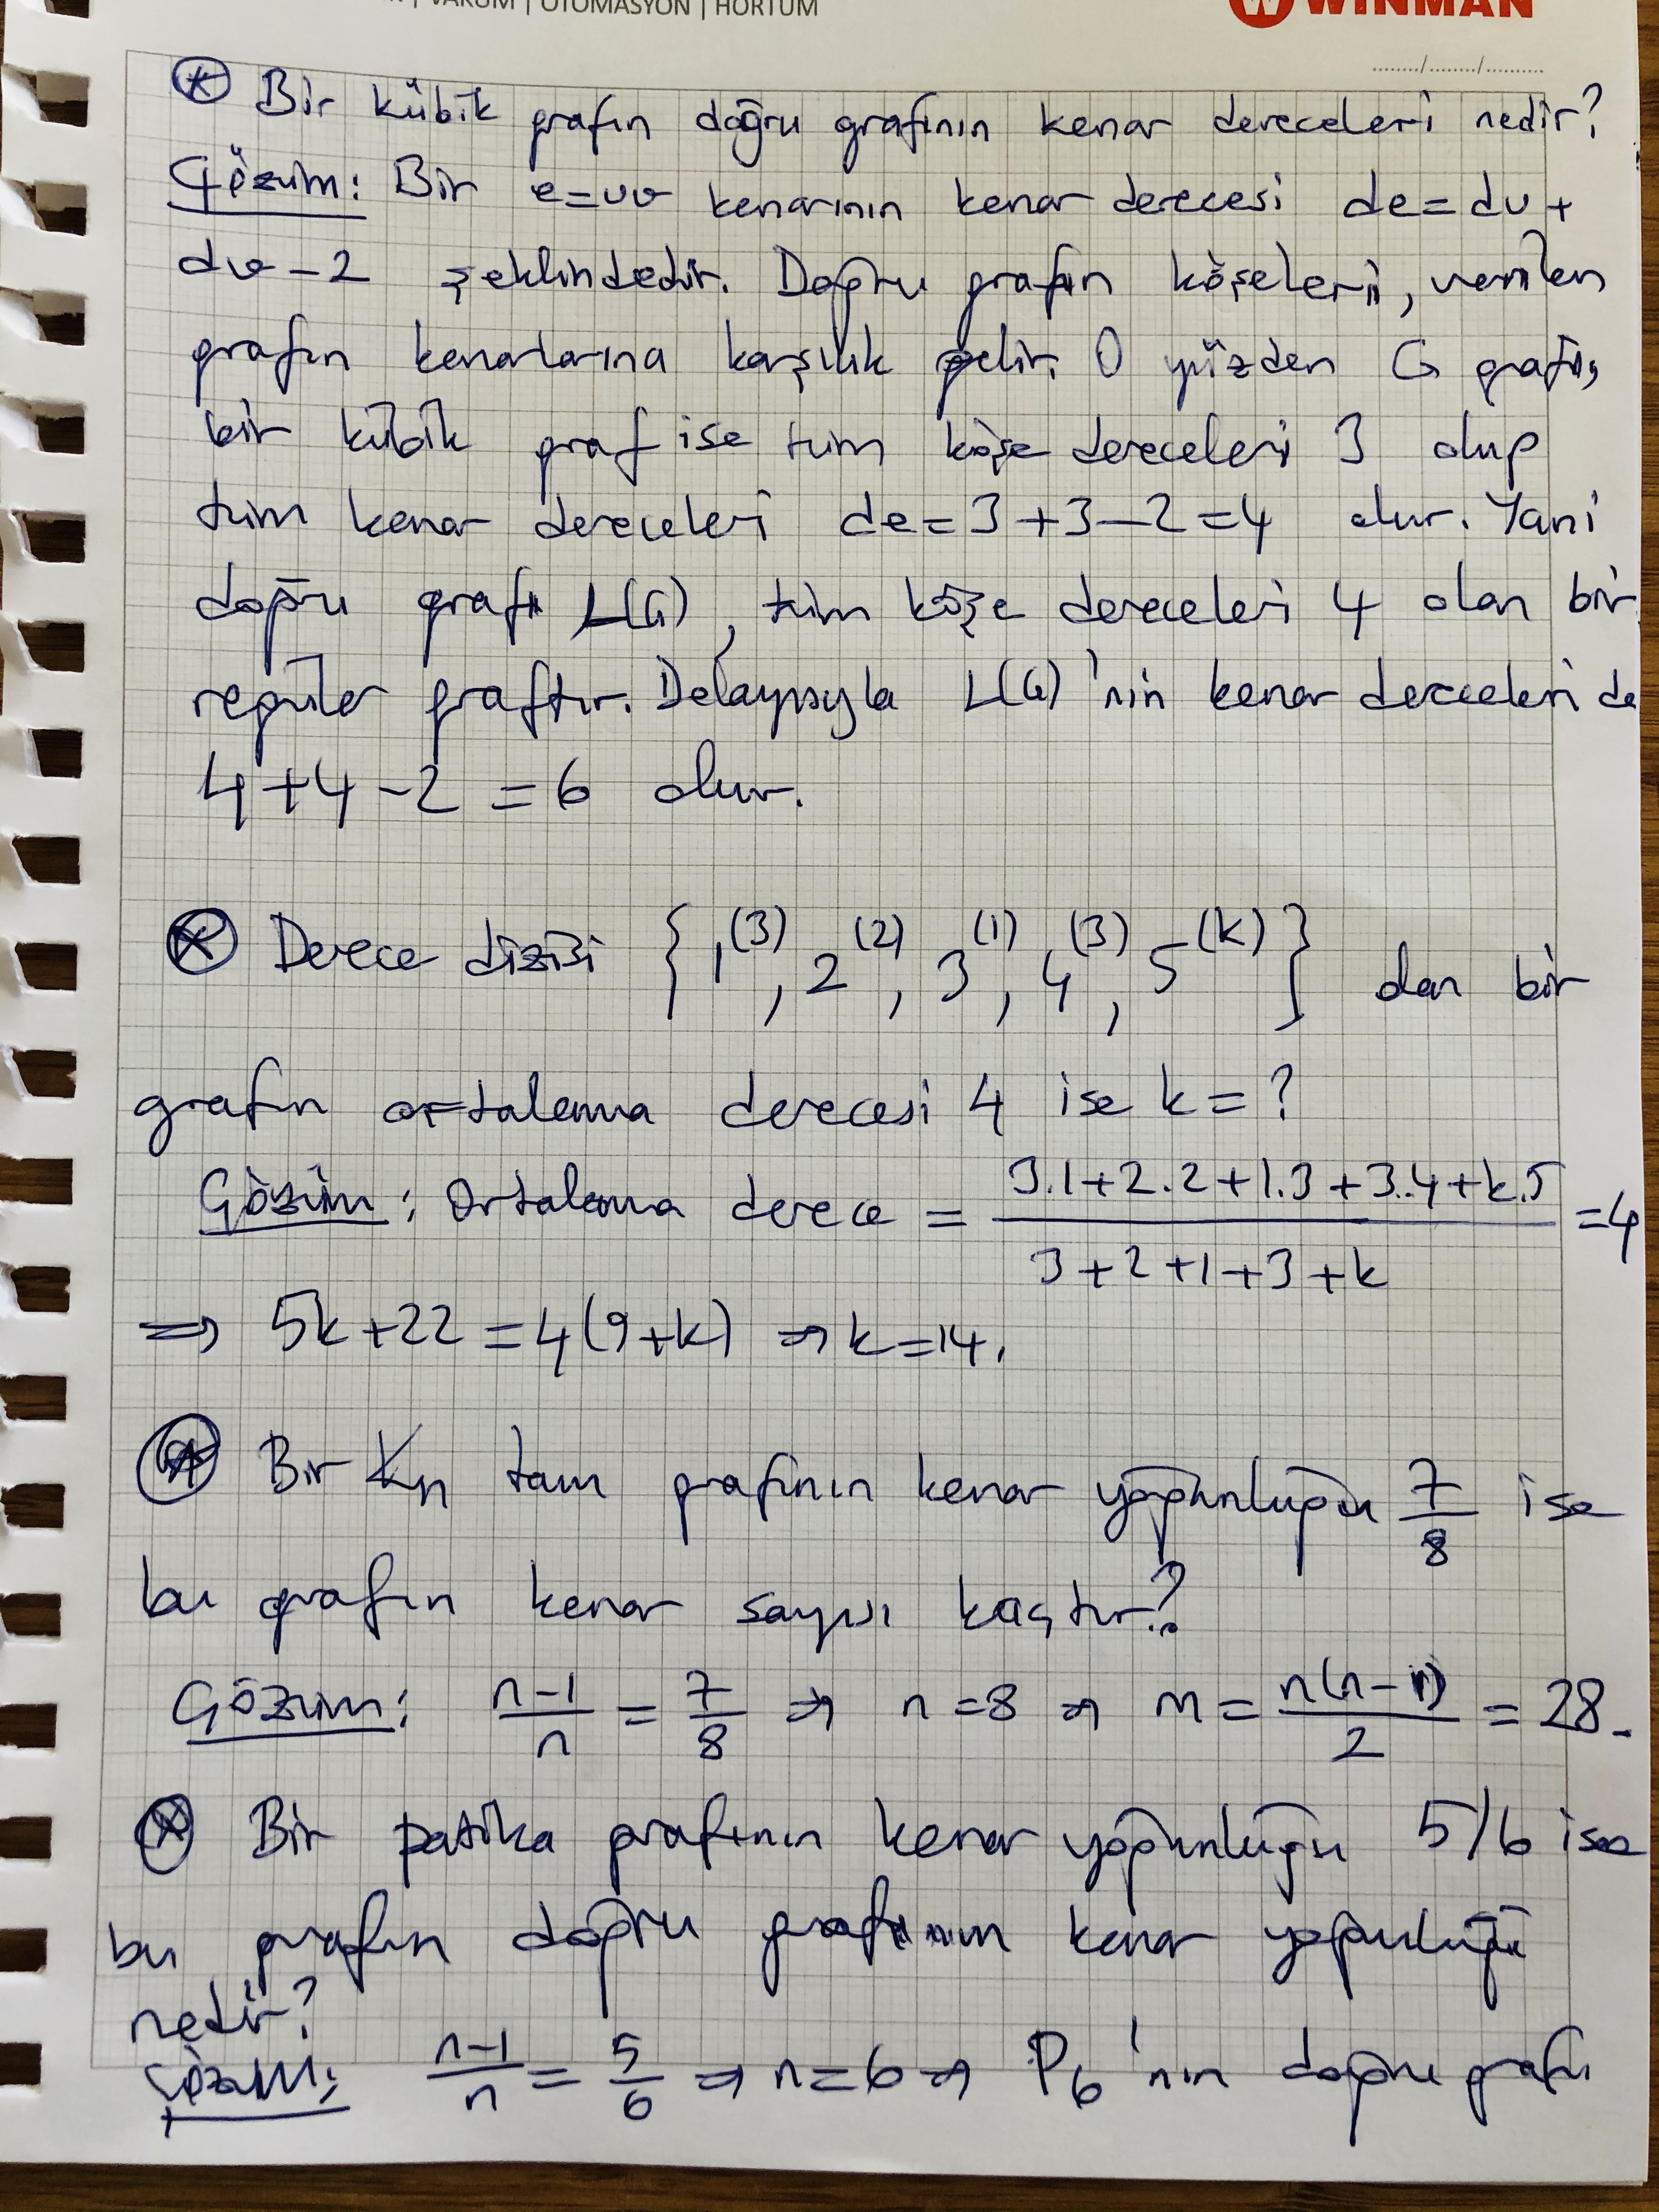 | VAKUM | OTOMASYON | HORTUM
W WINMAN
......../......../..........
⊛ Bir kübik grafın doğru grafının kenar dereceleri nedir?
Çözüm: Bir e=uv kenarının kenar derecesi de=du+
dv-2 şeklindedir. Doğru grafın köşeleri, verilen
grafın kenarlarına karşılık gelir. O yüzden G grafı,
bir kübik graf ise tüm köşe dereceleri 3 olup
tüm kenar dereceleri de=3+3-2=4 olur. Yani
doğru grafı L(G), tüm köşe dereceleri 4 olan bir
regüler graftır. Dolayısıyla L(G)'nin kenar dereceleri de
4+4-2=6 olur.
⊛ Derece dizisi {1^(3), 2^(2), 3^(1), 4^(3), 5^(k)} olan bir
grafın ortalama derecesi 4 ise k=?
Çözüm: Ortalama derece = (3.1+2.2+1.3+3.4+k.5)/(3+2+1+3+k) =4
⇒ 5k+22=4(9+k) ⇒ k=14.
⊛ Bir Kn tam grafının kenar yoğunluğu 7/8 ise
bu grafın kenar sayısı kaçtır?
Çözüm: (n-1)/n = 7/8 ⇒ n=8 ⇒ m = n(n-1)/2 = 28.
⊛ Bir patika grafının kenar yoğunluğu 5/6 ise
bu grafın doğru grafının kenar yoğunluğu
nedir?
Çözüm: (n-1)/n = 5/6 ⇒ n=6 ⇒ P6'nın doğru grafı